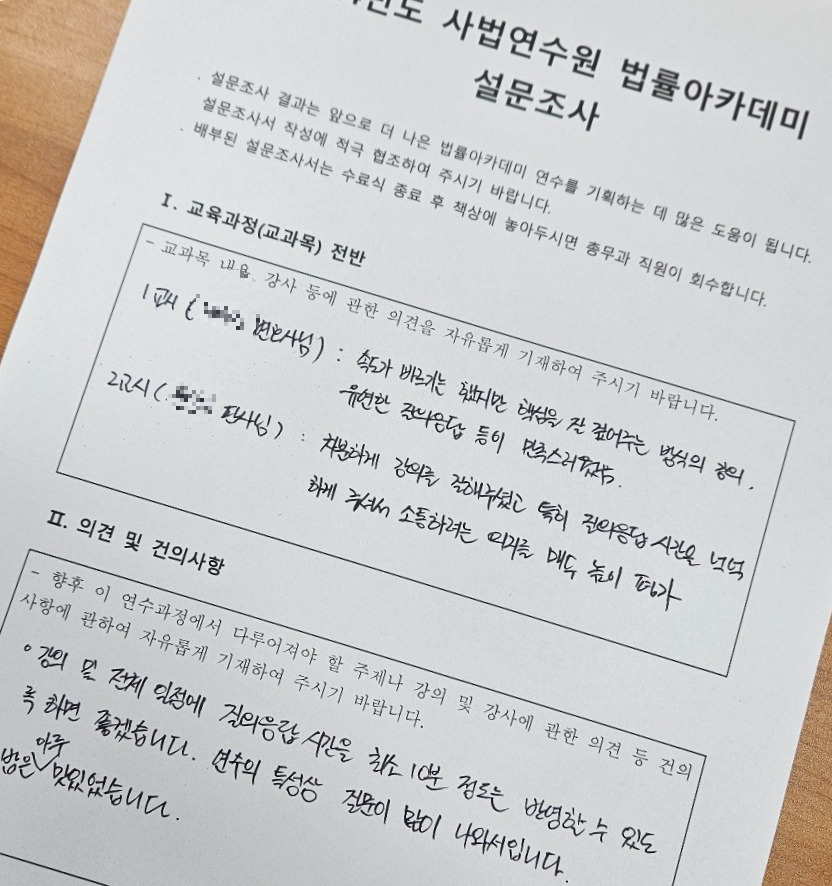 사법연수원 법률아카데미
설문조사
. 설문조사 결과는 앞으로 더 나은 법률아카데미 연수를 기획하는 데 많은 도움이 됩니다.
설문조사서 작성에 적극 협조하여 주시기 바랍니다.
. 배부된 설문조사서는 수료식 종료 후 책상에 놓아두시면 총무과 직원이 회수합니다.
Ⅰ. 교육과정(교과목) 전반
- 교과목 내용, 강사 등에 관한 의견을 자유롭게 기재하여 주시기 바랍니다.
1교시 ( 변호사님) : 속도가 빠르기는 했지만 핵심을 잘 짚어주는 방식의 강의,
유연한 질의응답 등이 만족스러웠음.
2교시 ( 판사님) : 차분하게 강의를 잘해주셨고 특히 질의응답 시간을 넉넉
하게 주셔서 소통하려는 의지를 매우 높이 평가
Ⅱ. 의견 및 건의사항
- 향후 이 연수과정에서 다루어져야 할 주제나 강의 및 강사에 관한 의견 등 건의
사항에 관하여 자유롭게 기재하여 주시기 바랍니다.
◦ 강의 및 전체 일정에 질의응답 시간을 최소 10분 정도는 반영할 수 있도
록 하면 좋겠습니다. 연수의 특성상 질문이 많이 나와서입니다.
밥은 아주 맛있었습니다.